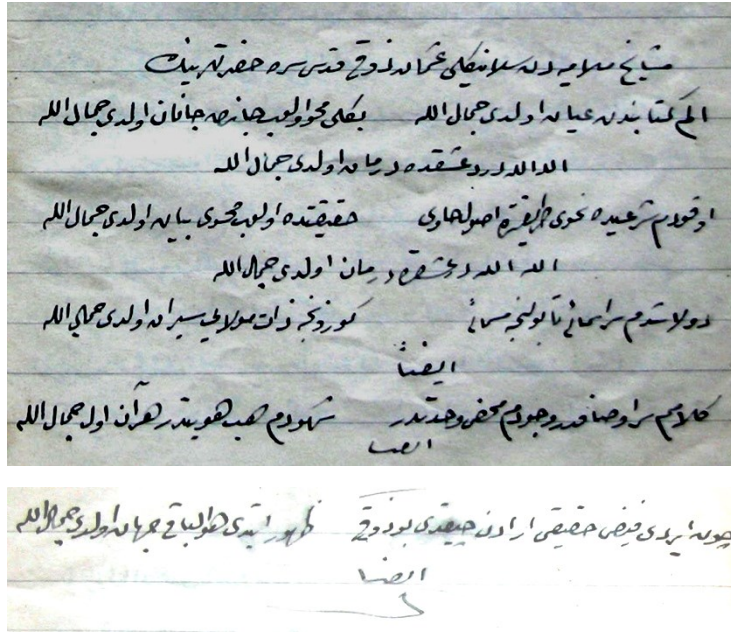 مشايخ ملاميه دن سلانيكلى عثمان ذوقى قدس سره حضرتلرينك
الم كتابندن عيان اولدى جمال الله بكلى محو اولوب جانره جانان اولدى جمال الله
الله الله درد عشقده درمان اولدى جمال الله
اوقودم شرعيده نحوى طريقتده اصولحاوى حقيقتده اولوب محوى بيان اولدى جمال الله
الله الله درد عشقده درمان اولدى جمال الله
دولاشدم سر اسمائى تا بولنجه مسمائى كورنجه ذات مولايى سيران اولدى جمال الله
ايضاً
كلامم سر اوصافدر وجودم محض وحدتدر شهودم هب هويتدر هر آن اولدى جمال الله
ايضا
چون ايردى فيض حقيقى ارادن چيقدى بو ذوقى ظهور ايتدى هو الباقى جهان اولدى جمال الله
ايضا